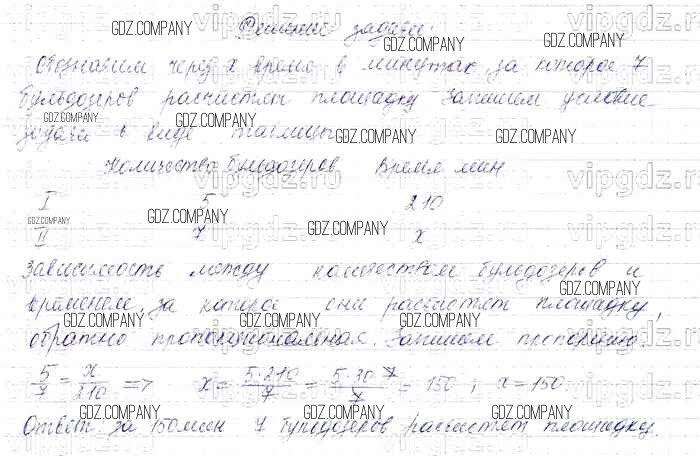 Решение задачи.
Обозначим через x время в минутах за которое 7
бульдозеров расчистят площадку Запишем условие
задачи в виде таблицы
Количество бульдозеров Время мин
I 5 210
II 7 x
Зависимость между количеством бульдозеров и
временем, за которое они расчистят площадку,
обратно пропорциональная. Запишем пропорцию.
5/7 = x/210 => x = 5·210/7 = 5·30·7/7 = 150; x=150.
Ответ за 150 мин 7 бульдозеров расчистят площадку.
GDZ.COMPANY
vipgdz.ru